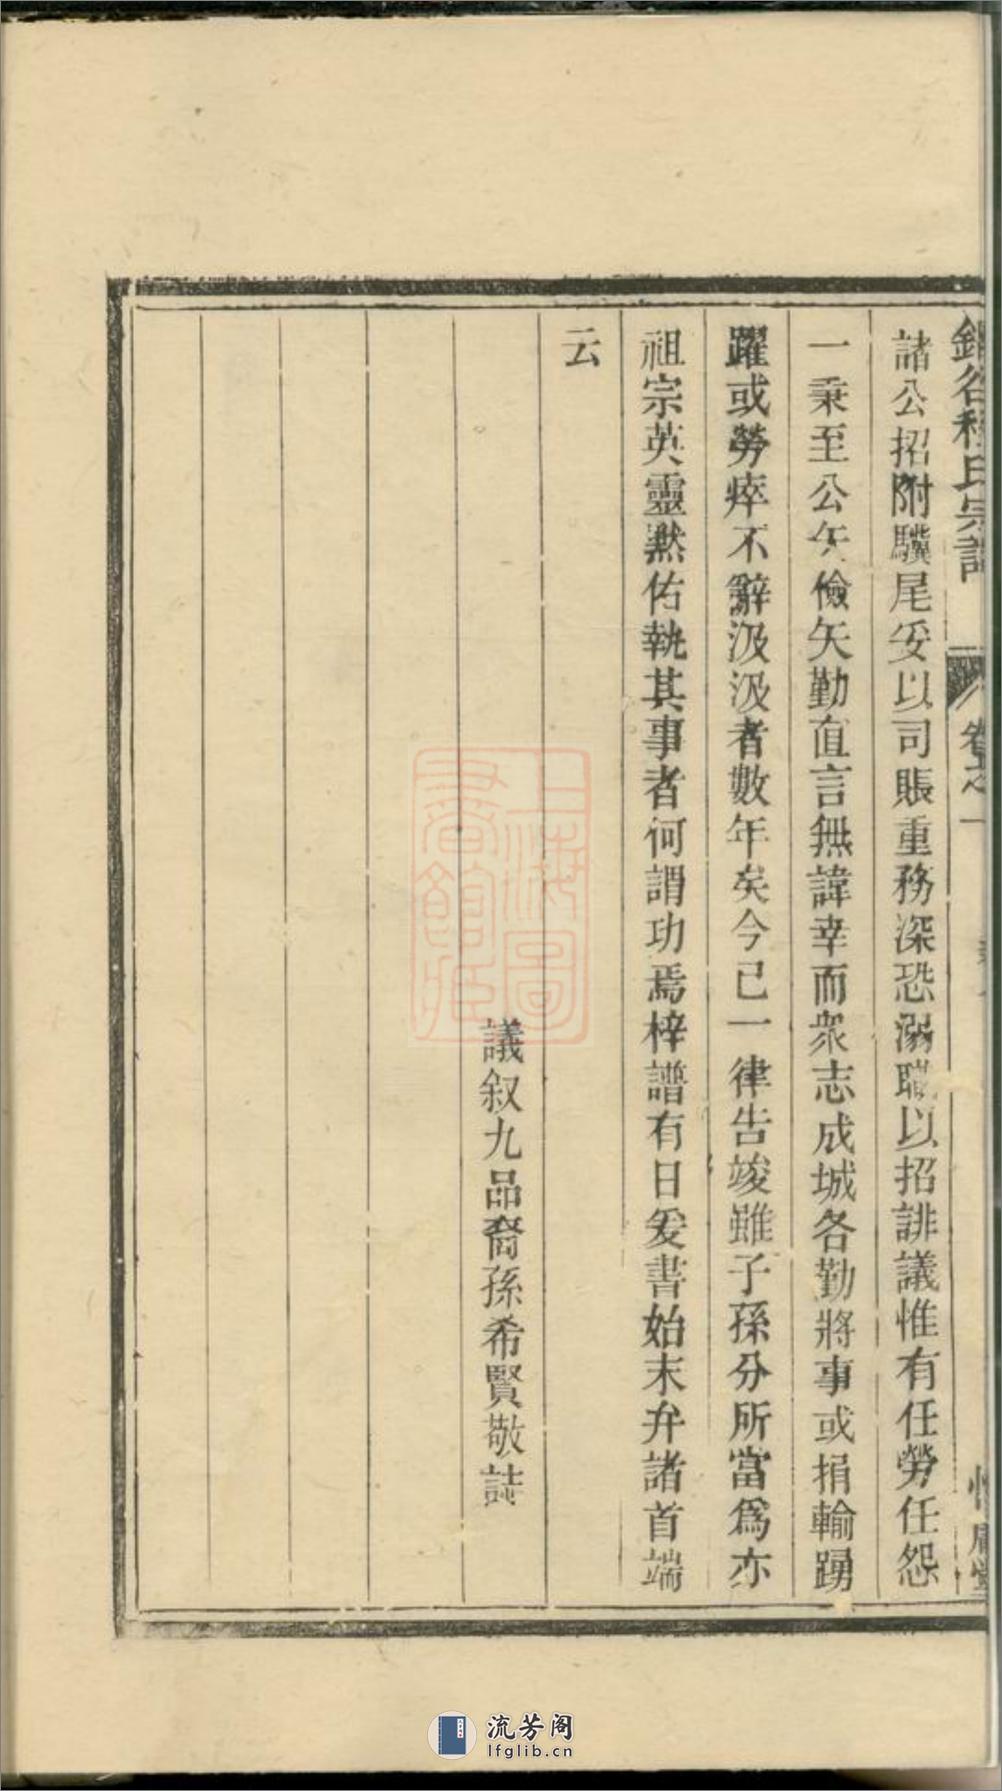 程氏宗譜
卷之一
諸公招附驥尾妥以司賬重務深恐溺職以招誹議惟有任勞任怨
一秉至公矢儉矢勤直言無諱幸而衆志成城各勤將事或捐輸踴
躍或勞瘁不辭汲汲者數年矣今已一律告竣雖子孫分所當爲亦
祖宗英靈黙佑執其事者何謂功焉梓譜有日爰書始末弁諸首端
云
議叙九品裔孫希賢敬誌
上海圖
書館藏
流芳阁
lfglib.cn